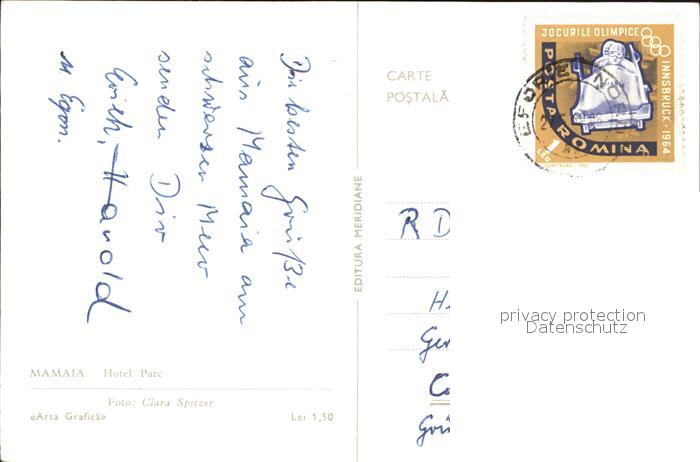 Die besten Grüße
aus Mamaia am
schwarzen Meer
senden Dir
Harold
u Egon.
MAMAIA Hotel Parc
Foto: Clara Spitzer
«Arta Grafică» Lei 1,50
EDITURA MERIDIANE
CARTE
POȘTALĂ
JOCURILE OLIMPICE
INNSBRUCK · 1964
POSTA ROMINA
1 LEU
EFORIE NORD
R D
H
Ger
Grü
privacy protection
Datenschutz